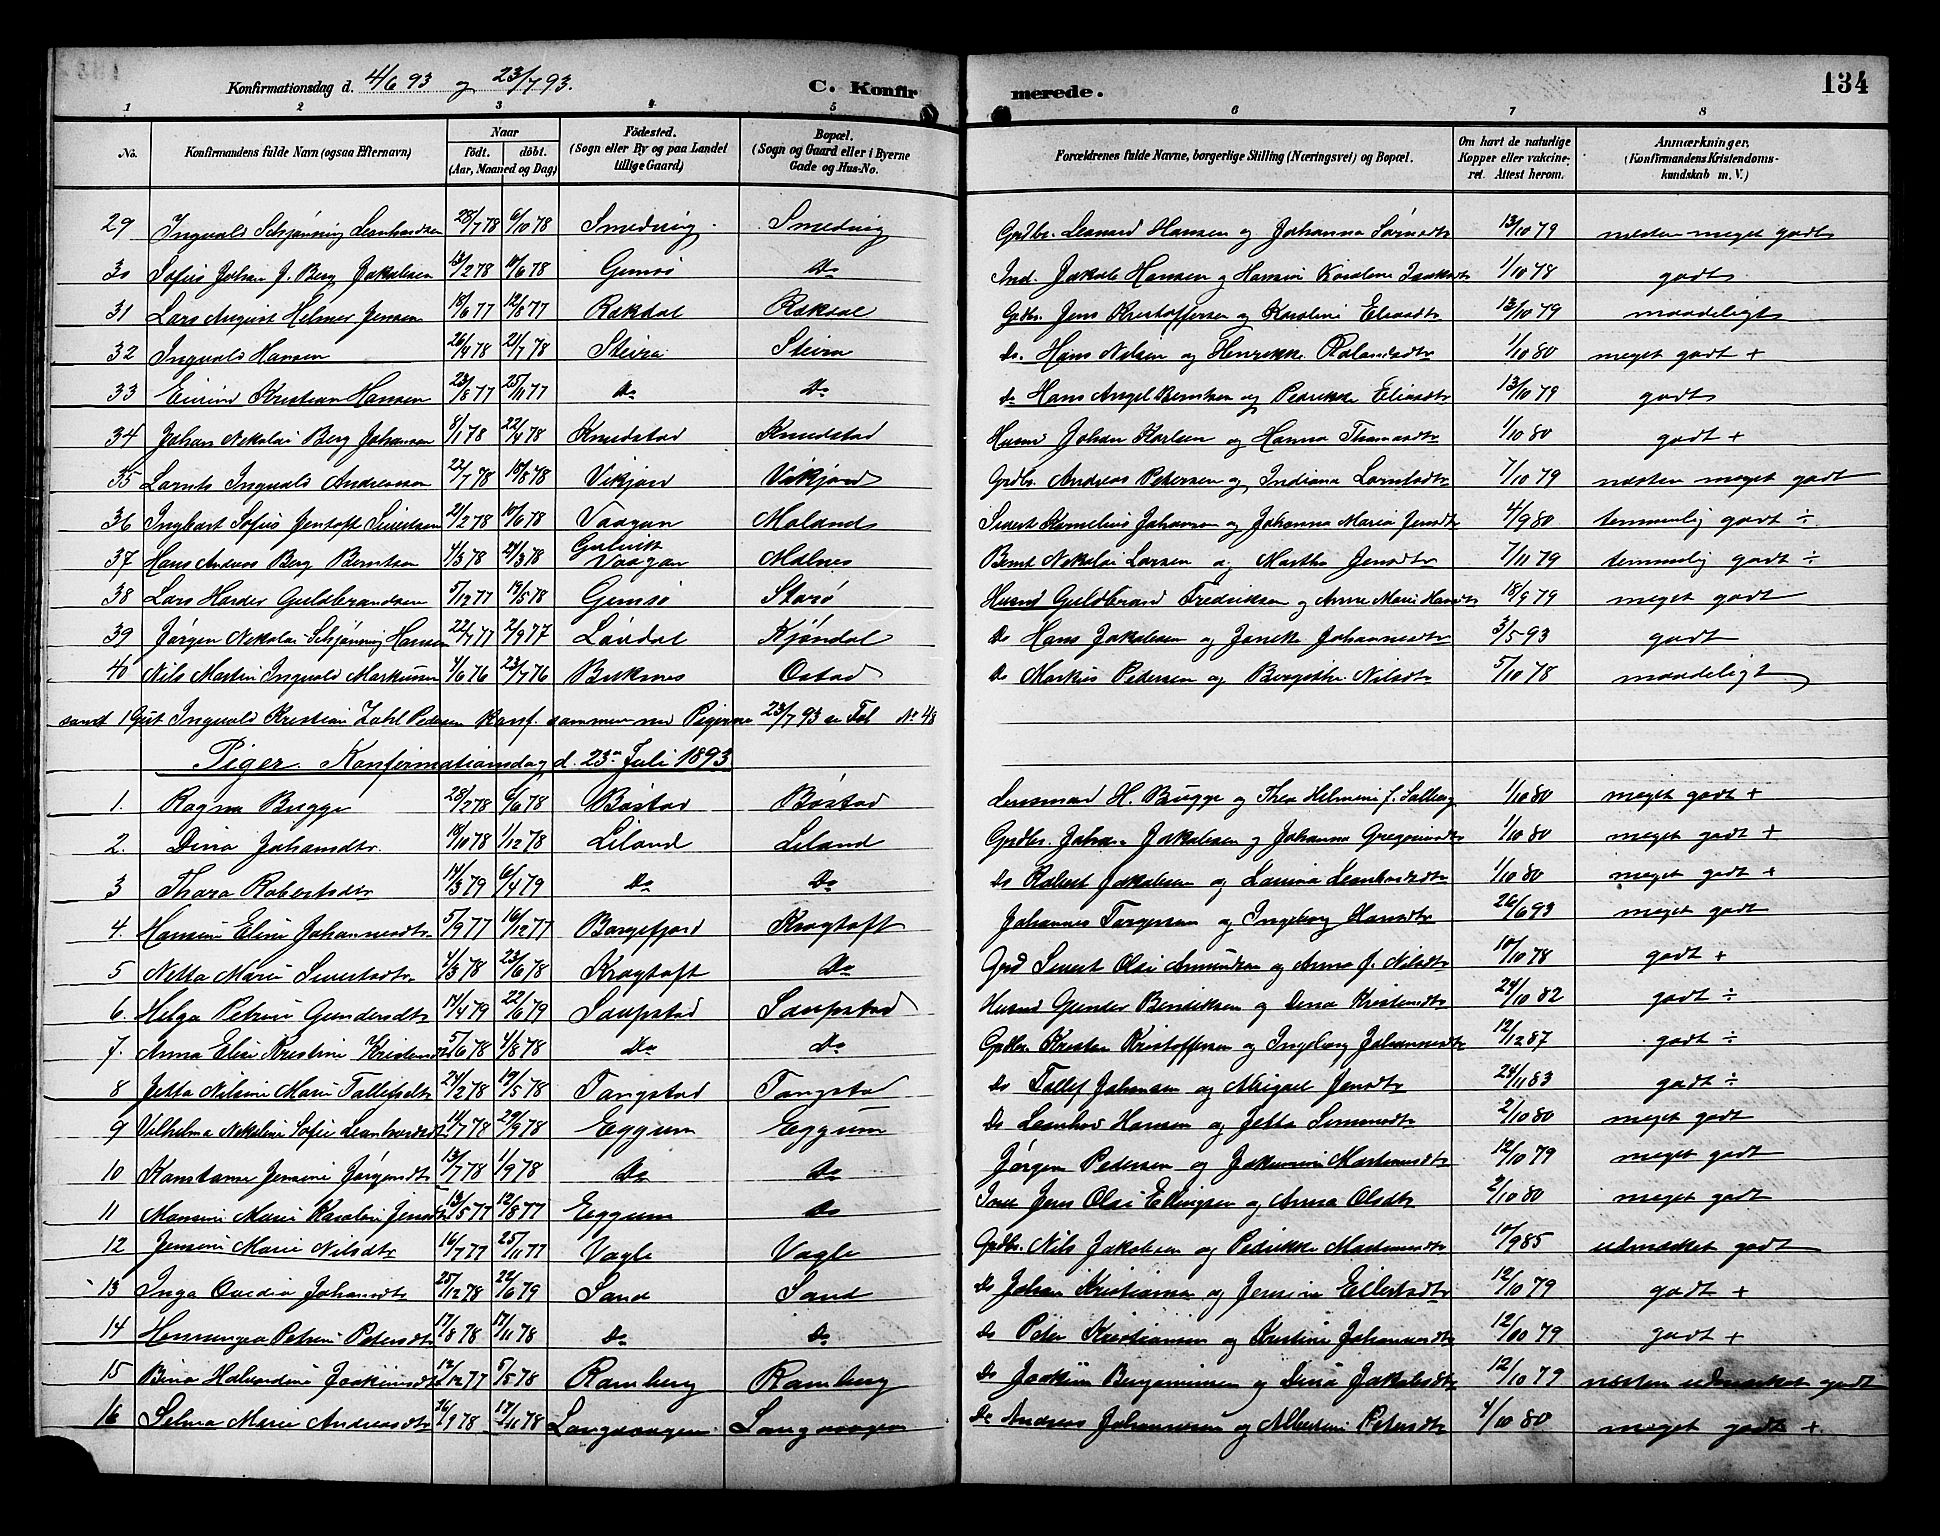 Konfirmationsdag d. 4/6 93 og 23/7 93. C. Konfirmerede. 134
1 2 3 4 5 6 7 8
No. Konfirmandens fulde Navn (ogsaa Efternavn) Naar födt. döbt. (Aar, Maaned og Dag) Födested. (Sogn eller By og paa Landet tillige Gaard) Bopæl. (Sogn og Gaard eller i Byerne Gade og Hus-No. Forældrenes fulde Navne, borgerlige Stilling (Næringsvei) og Bopæl. Om havt de naturlige Kopper eller vakcineret. Attest herom. Anmærkninger. (Konfirmandens Kristendomskundskab m. V.)
29 Ingvald Schjønning Leonhardsen 28/7 78 6/10 78 Smedvig Smedvig Grdbr. Leonard Hansen og Johanna Sørensdtr 13/10 79 næsten meget godt
30 Sofus Johan J. Berg Jakobsen 13/2 78 10/6 78 Gimsø Do Ind. Jakob Hansen og Hansine Karoline Isaksdtr 1/10 78 godt
31 Lars August Helmer Jensen 18/6 77 12/8 77 Rækdal Rækdal Grdbr. Jens Kristoffersen og Karoline Eliasdtr 13/10 79 maadeligt
32 Ingvald Hansen 26/4 78 21/7 78 Steira Steira Do. Hans Nilsen og Henrikke Rolandsdtr 1/10 80 meget godt +
33 Eivind Kristian Hansen 23/8 77 25/11 77 Do Do Do Hans Angel Berntsen og Pedrikke Eliasdtr 13/10 79 godt
34 Johan Nekolai Berg Johansen 8/1 78 22/4 78 Knudstad Knudstad Husmd Johan Karlsen og Hanna Thomasdtr 1/10 80 godt +
35 Lornts Ingvald Andreassen 22/7 78 18/8 78 Vikjord Vikjord Grdbr. Andreas Petersen og Indiana Lorntsdtr 7/10 79 næsten meget godt
36 Ingbart Sofus Jentoft Sivertsen 21/2 78 10/6 78 Vaagan Moland Sivert Kornelius Johansen og Johanna Maria Jensdtr 4/9 80 temmelig godt ÷
37 Hans Andreas Berg Berntsen 4/3 78 24/3 78 Gulvik Vaagan Molnes Bernt Nekolai Larsen og Martha Jensdtr 7/11 79 temmelig godt ÷
38 Lars Harder Guldbrandsen 5/12 77 19/5 78 Gimsø Storø Husmd Guldbrand Fredriksen og Anne Marie Hansdtr 18/9 79 meget godt
39 Jørgen Nekolai Schjønning Hansen 22/7 77 2/9 77 Løvdal Kjøndal Do Hans Jakobsen og Janikke Johannesdtr 3/5 93 godt
40 Nils Martin Ingvald Markussen 4/6 76 23/7 76 Buksnes Ostad Do Markus Pedersen og Bergithe Nilsdtr 5/10 78 maadeligt
samt 1 Gut Ingvald Kristian Zahl Pedersen konf. sammen med Pigerne 23/7 93 se Fol No 48
Piger Konfirmationsdag d. 23de Juli 1893
1. Ragna Bugge 28/2 78 6/6 78 Bøstad Bøstad Lensmand H. Bugge og Thea Helmine f. Solberg 1/10 80 meget godt +
2. Dina Johansdtr. 18/10 78 1/12 78 Liland Liland Grdbr. Johan Jakobsen og Johanna Gregoriusdtr 1/10 80 meget godt +
3 Thora Robertsdtr 14/3 79 6/4 79 Do Do Do Robert Jakobsen og Lovina Leonhardsdtr 1/10 80 meget godt +
4. Hansine Eline Johannesdtr 5/9 77 16/12 77 Borgefjord Kragtoft Johannes Torgersen og Ingeborg Hansdtr 26/6 93 meget godt
5 Netta Marie Sivertsdtr 4/3 78 23/6 78 Kragtoft Do Grd Sivert Olai Amundsen og Anna J. Nilsdtr 10/10 78 godt +
6. Helga Petrine Gundersdtr 14/4 79 22/6 79 Saupstad Saupstad Husmd Gunder Bendiksen og Dina Kristensdtr 24/10 82 godt ÷
7. Anna Elise Kristine Kristensdtr 5/6 78 4/8 78 Do Do Grdbr. Kristen Kristoffersen og Ingeborg Johannesdtr 12/12 87 godt ÷
8 Jetta Nilsine Marie Tollefsdtr 24/2 78 19/5 78 Tangstad Tangstad Do Tollef Johansen og Abigael Jensdtr 28/11 83 godt ÷
9 Vilhelma Nekoline Sofie Leonhardsdtr 14/7 78 29/9 78 Eggum Eggum Do Leonhard Hansen og Jetta Simensdtr 2/10 80 meget godt
10 Konstanse Jensine Jørgensdtr 13/7 78 1/9 78 Do Do Jørgen Pedersen og Jakobine Martinusdtr 12/10 79 meget godt
11 Monsine Marie Karoline Jensdtr 13/5 77 12/8 77 Eggum Do Jens Olai Ellingsen og Anna Olsdtr 2/10 80 meget godt
12 Jensine Marie Nilsdtr 16/7 77 25/11 77 Vagle Vagle Grdbr. Nils Jakobsen og Pedrikke Martinusdtr 10/9 85 udmærket godt
13 Inga Ovedia Johansdtr 25/12 78 22/6 79 Sand Sand Do Johan Kristiansen og Jensine Eilertsdtr 12/10 79 godt +
14 Henningea Petrine Petersdtr 17/8 78 17/11 78 Do Do Do Peter Kristiansen og Kristine Johannesdtr 12/10 79 godt +
15 Bina Halvardine Joakimsdtr 12/12 77 5/5 78 Ramberg Ramberg Do Joakim Benjaminsen og Dina Jakobsdtr 12/10 79 næsten udmærket godt
16 Selma Marie Andreasdtr 26/9 78 17/11 78 Langvaagen Langvaagen Do Andreas Johannesen og Albertine Petersdtr 4/10 80 meget godt +